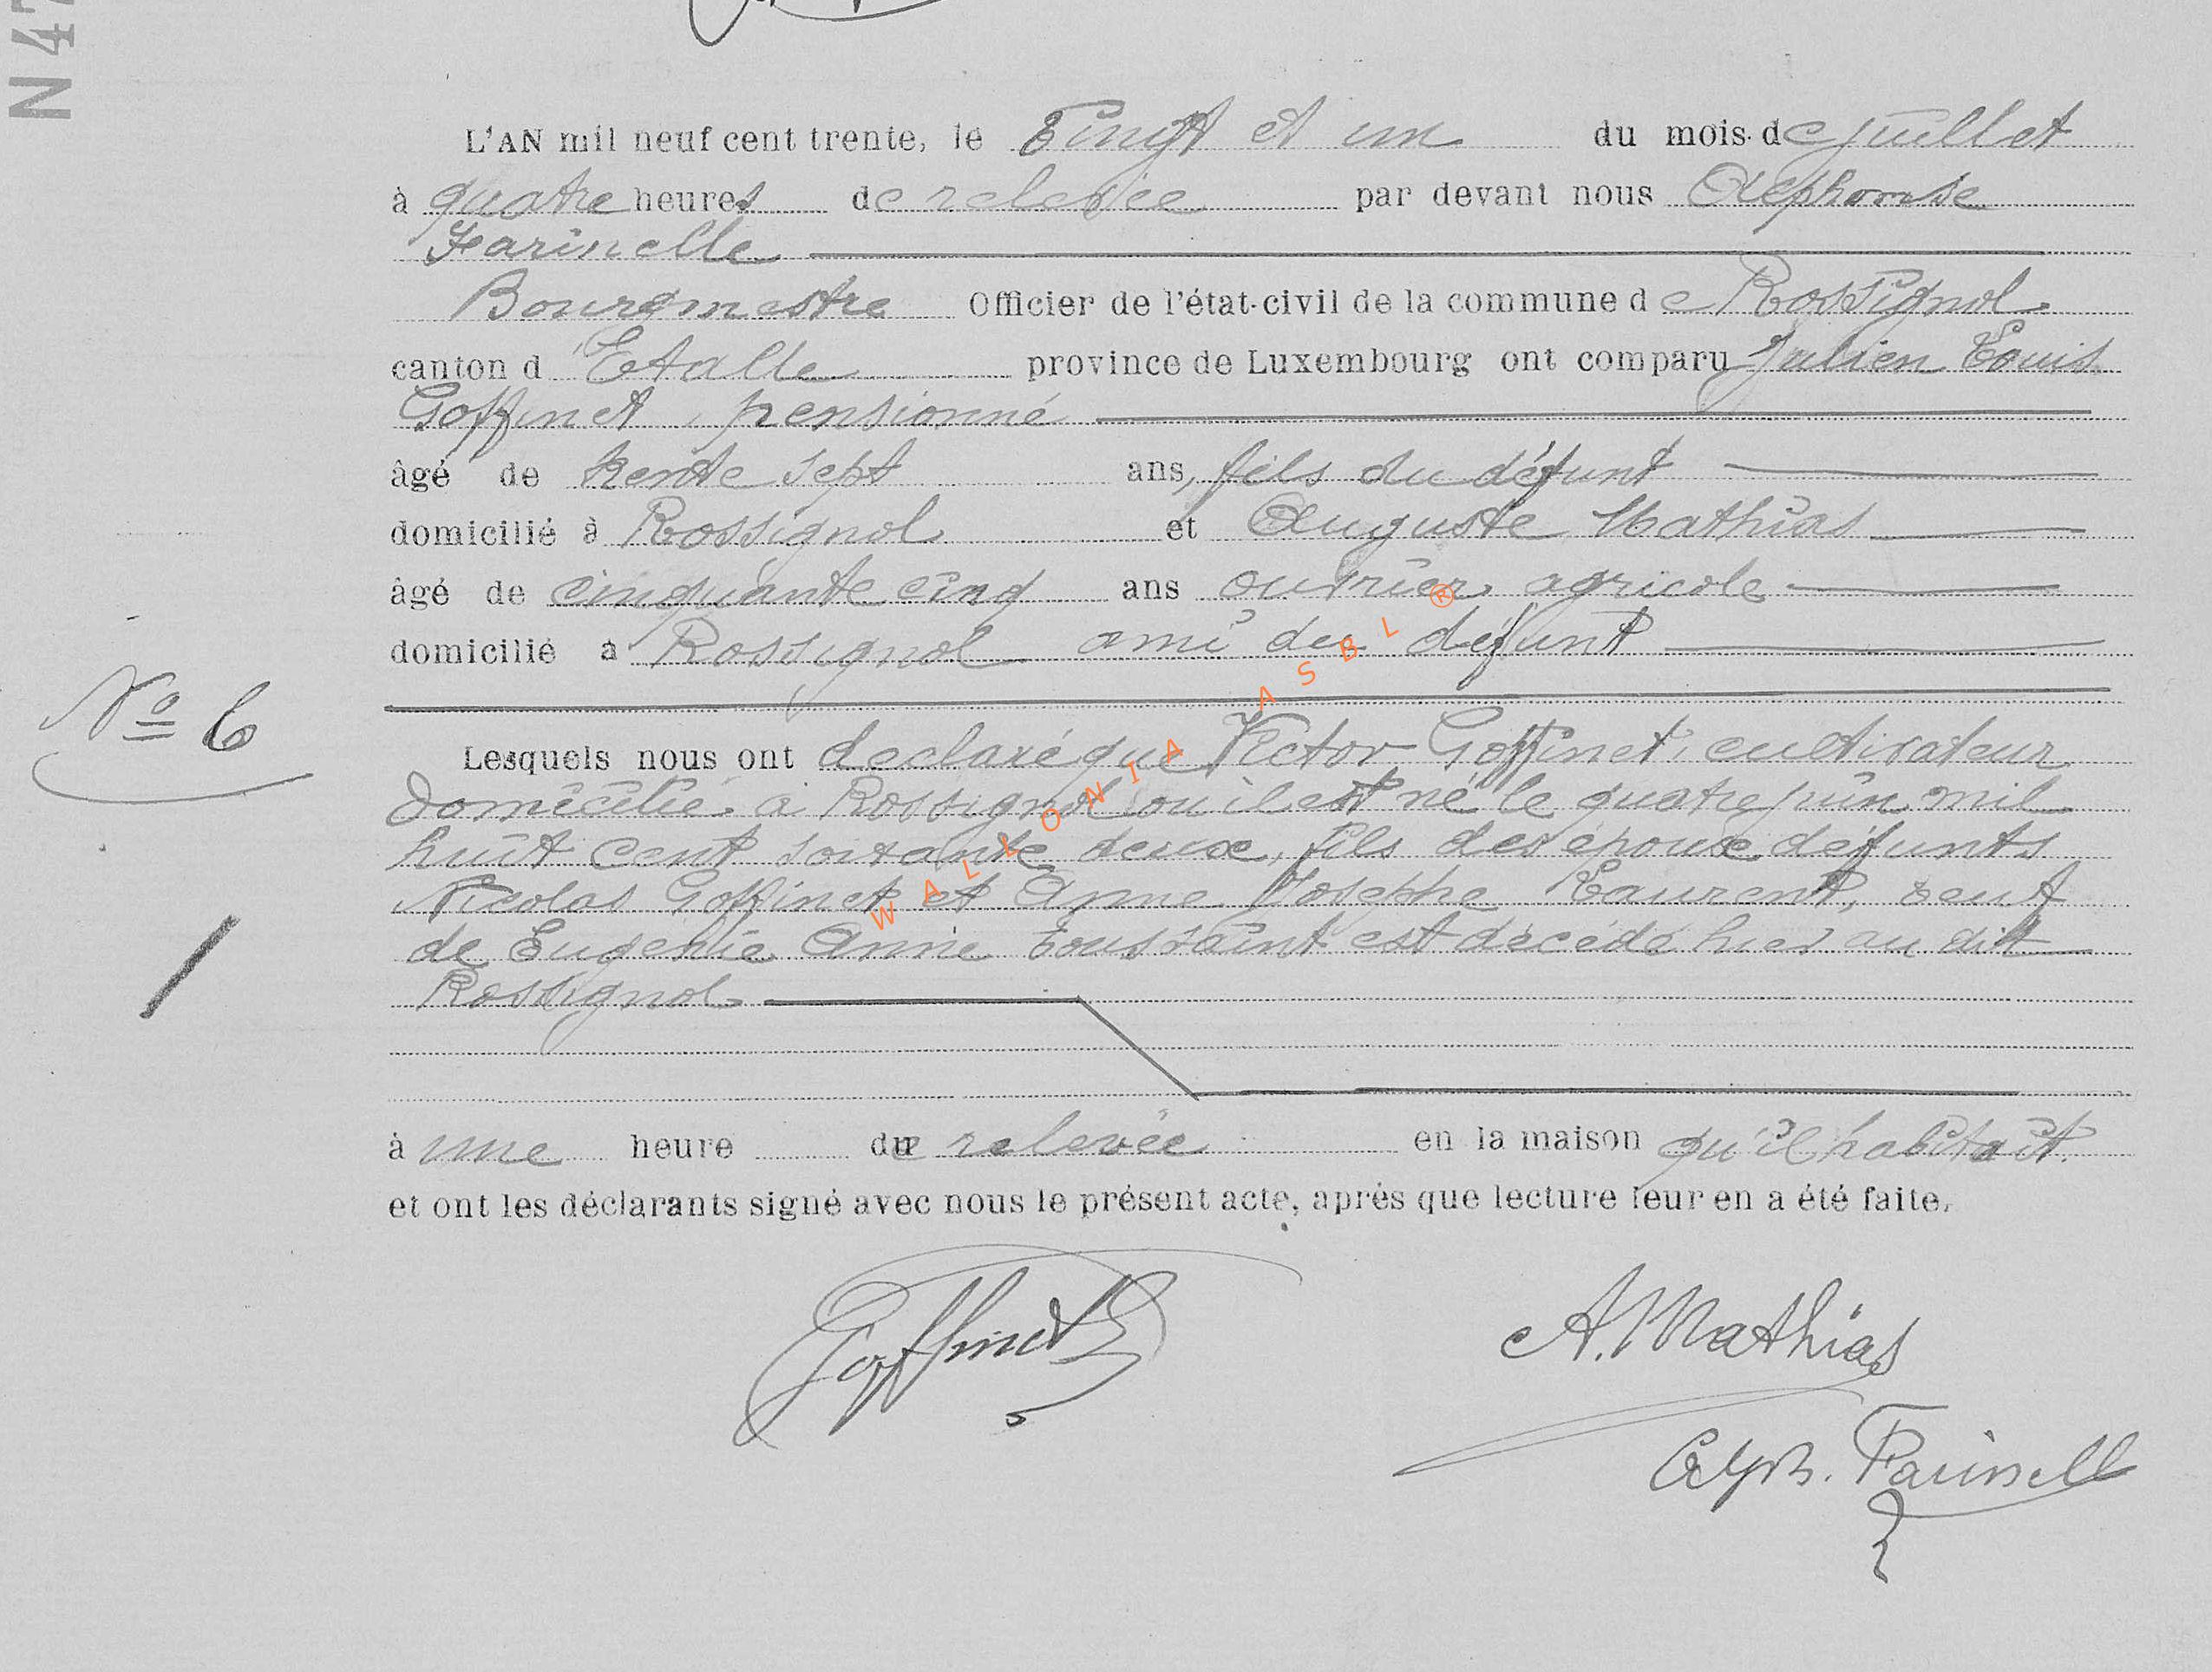 N 47
L'AN mil neuf cent trente, le Vingt et un du mois de juillet
à quatre heures de relevée par devant nous Alephonse
Farinelle
Bourgmestre Officier de l'état-civil de la commune de Rossignol
canton d'Etalle province de Luxembourg ont comparu Julien Louis
Goffinet, pensionné
âgé de trente sept ans, fils du défunt
domicilié à Rossignol et Auguste Mathias
âgé de cinquante cinq ans ouvrier agricole
domicilié à Rossignol ami du défunt
No 6
Lesquels nous ont declaré que Victor Goffinet, cultivateur
domicilié à Rossignol où il est né le quatre juin mil
huit cent soixante deux, fils des époux défunts
Nicolas Goffinet et Anne Josephe Laurent, veuf
de Eugenie Annie Toussaint est décédé hier au dit
Rossignol
à une heure de relevée en la maison qu'il habitait.
et ont les déclarants signé avec nous le présent acte, après que lecture leur en a été faite.
Goffinet
A. Mathias
Alph. Farinelle
WALLONIA ASBL ®